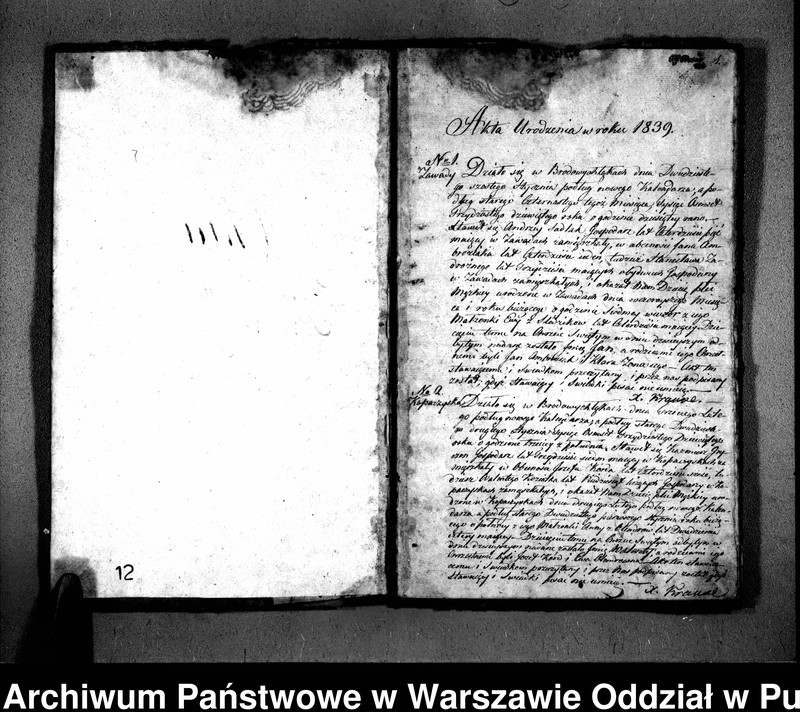 12
1.
Akta Urodzenia w roku 1839.
No 1.
Zawady
Działo się w Brodowychłąkach dnia Dwudzieste-
go szóstego Stycznia podług nowego Kalendarza, a po-
dług starego Czternastego tegoż Miesiąca, Tysiąc Ośmset
Trzydziestego dziewiątego roku o godzinie dziewiątey rano.
Stawił się Andrzey Sadlak Gospodarz lat Czterdzieści pięć
maiący w Zawadach zamieszkały, w obecności Jana Am-
broziaka lat Czterdzieści ieden, tudzież Stanisława Za-
lat maiących obydwuch Gospodarzy
w Zawadach zamieszkałych, i okazał Nam Dziecię płci
Męzkiey urodzone w Zawadach dnia Miesią-
ca i roku bieżącego o godzinie Siódmey wieczór z iego
Małżonki Ewy z lat maiącey Dzie-
cięciu temu na Chrzcie Świętym w dniu dzisieyszym od-
bytym nadane zostało Imię Jan, a rodzicami iego Chrzest-
nemi byli Jan Ambroziak i Klara Żona iego. Akt ten
stawaiącemu i Świadkom przeczytany i przez nas podpisany
został, gdyż Stawaiący i Świadki pisać nie umieią.
X. Krause
No 2.
Kopaczyska
Działo się w Brodowychłąkach dnia trzeciego Lute-
go podług nowego Kalendarza, a podług starego Dwudzieste-
go drugiego Stycznia Tysiąc Ośmset Trzydziestego Dziewiątego
roku o godzinie trzeciey z południa, Stawił się Kazimierz
Gospodarz lat Trzydzieści siedm maiący w Kopaczyskach za-
mieszkały w obecności Józefa lat Czterdzieści tu-
dzież Walentego lat maiących Gospodarzy w Ko-
paczyskach zamieszkałych, i okazał Nam Dziecię płci Męzkiey uro-
dzone w Kopaczyskach dnia drugiego Lutego podług nowego Kalen-
darza a podług starego Dwudziestego pierwszego Stycznia roku bieżą-
cego o północy z iego Małżonki Anny z lat
maiącey. Dziecięciu temu na Chrzcie Świętym odbytym w
dniu dzisieyszym nadane zostało Imię Walenty, a rodzicami iego
Chrzestnemi byli Józef i Ewa Akt ten Stawaią-
cemu i Świadkom przeczytany i przez Nas podpisany został gdyż
Stawaiący i Świadki pisać nie umieią.
X. Krause
Archiwum Państwowe w Warszawie Oddział w Pu